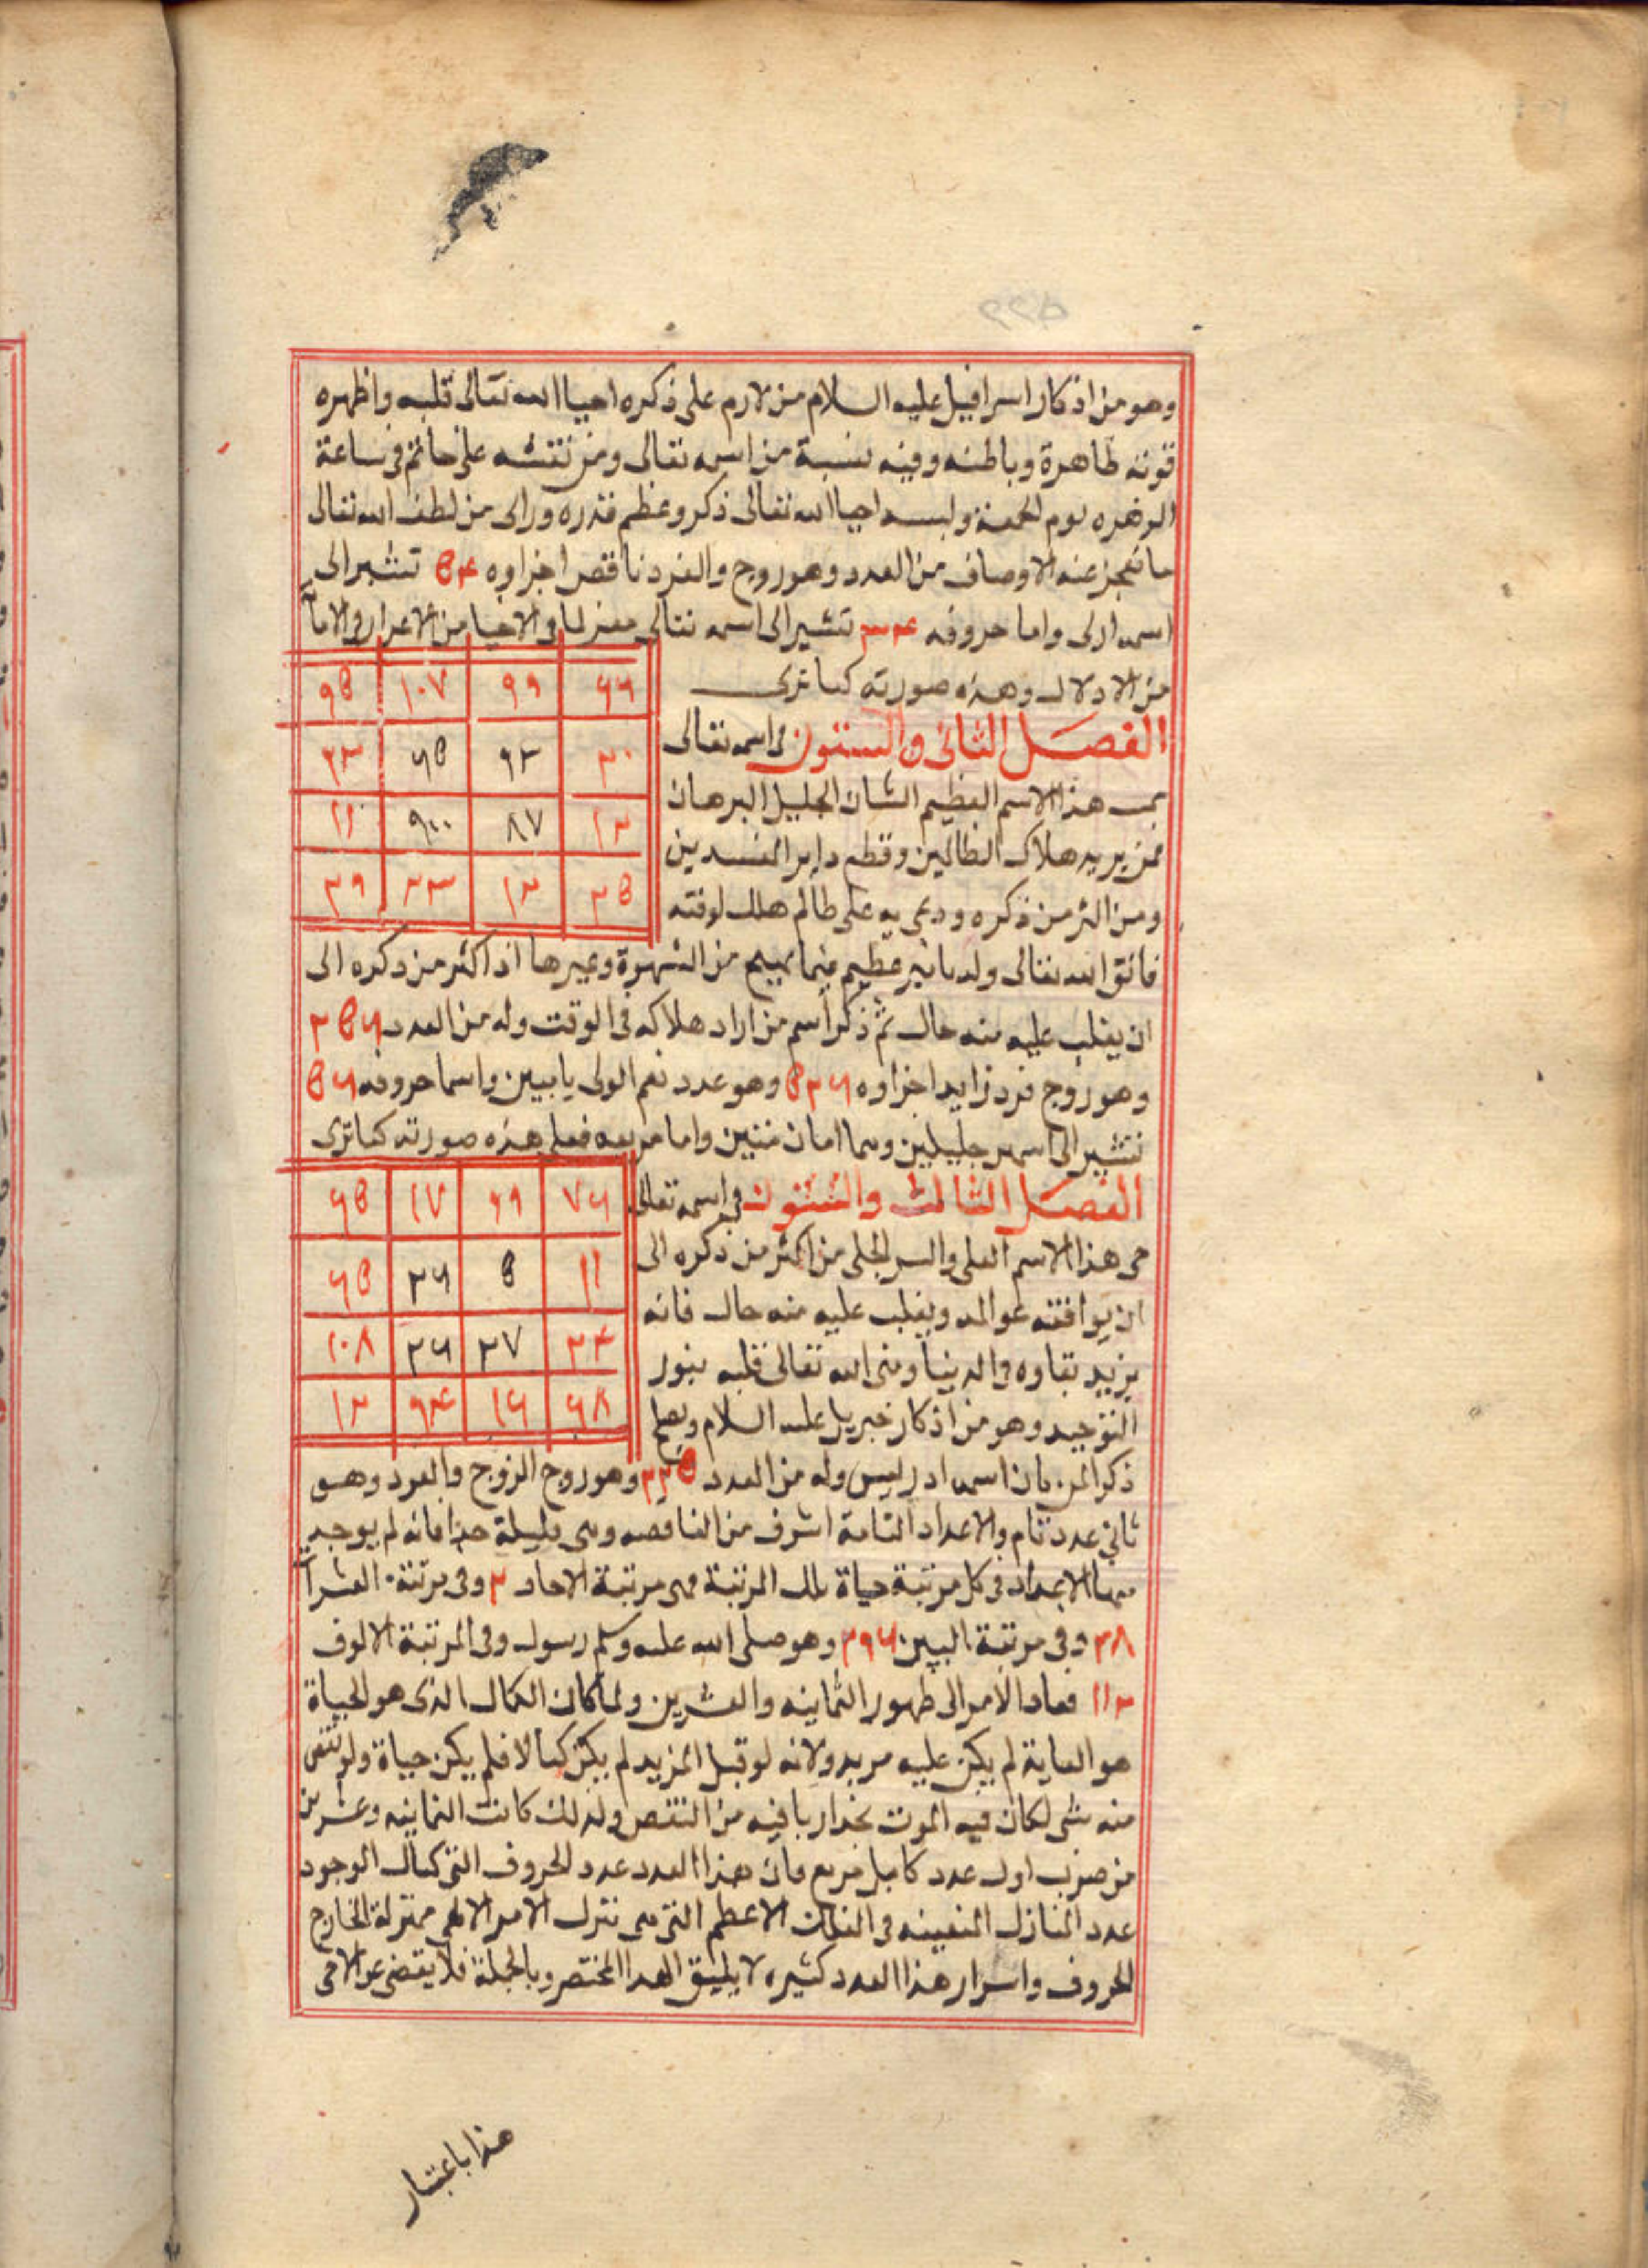 وهو من اذكار اسرافيل عليه السلام من لازم على ذكره احيا الله تعالى قلبه واظهره
قوته ظاهرة وباطنه وفيه نسبة من اسمه تعالى ومن نقشه على خاتم فى ساعة
الزهره يوم الجمعة ولبسه احيا الله تعالى ذكر وعظم قدره وراى من لطف الله تعالى
ما تعجز عنه الاوصاف من العدد وهو زوج والفرد ناقص اجزاوه ٥٤ تشير الى
اسمه ازلى واما حروفه تشير الى اسمه تعالى
من الادلال وهذه صورته كما ترى
٦٦ ٩٩ ١٠٧ ٩٥
٣٠ ٩٣ ٦٥ ٢٣
١٣ ٨٧ ٩٠٠ ١١
٣٥ ١٣ ٣٣ ٣٩
الفصل الثانى والستون فى اسمه تعالى
هذا الاسم العظيم الشان الجليل البرهان
من يريد هلاك الظالمين وقطع دابر المفسدين
ومن اكثر من ذكره ودعى به على ظالم هلك لوقته
فاتق الله تعالى وله تاثير عظيم فيما يهيج من الشهوة وغيرها اذ اكثر من ذكره الى
ان يغلب عليه منه حال ثم ذكر اسم من اراد هلاكه فى الوقت وله من العدد
وهو زوج فرد زايد اجزاوه وهو عدد نعم الولى واسما حروفه ٥٦
تشير الى جليلين وهما امان متين واما مربعه فعلى هذه صورته كما ترى
٧٦ ٦٩ ١٧ ٦٥
١١ ٥ ٣٦ ٦٥
٣٤ ٣٧ ٣٦ ١٠٨
٦٨ ١٦ ٩٤ ١٣
الفصل الثالث والستون فى اسمه تعالى
حى هذا الاسم العلى والسر الجلى من اكثر من ذكره الى
ان يوافقه عوالمه ويغلب عليه منه حال فانه
يزيد بقاوه فى الدنيا الله تعالى قلبه بنور
التوحيد وهو من اذكار جبريل عليه السلام ويصلح
ذكر لمن كان اسمه ادريس وله من العدد وهو زوج الزوج والفرد وهو
ثانى عدد تام والاعداد التامة اشرف من الناقصه وهى قليلة جدا فانه لم يوجد
الاعداد فى كل مرتبة حياة تلك المرتبة فهى مرتبة الاحاد وفى مرتبة العشرات
وفى مرتبة المييين وهو صلى الله عليه وسلم رسول وفى المرتبة الالوف
فعاد الامر الى ظهور الثمانيه والعشرين ولما كان الكمال الذى هو الحياة
هو الغاية لم يكن عليه مزيد ولانه لو قبل المزيد لم يكن كمالا فلم يكن حياة ولو نقص
منه شى لكان فيه الموت بمقدار ما فيه من النقص ولذلك كانت الثمانيه وعشرين
من ضرب اول عدد كامل مربع فان هذا العدد عدد الحروف التى كمال الوجود
عدد المنازل المتعينه فى الفلك الاعظم التى هى تنزل الامر الالهى بمنزلة المخارج
الحروف واسرار هذا العدد كثيره لا يليق لهذا المختصر وبالجملة فلا
هذا باعتبار